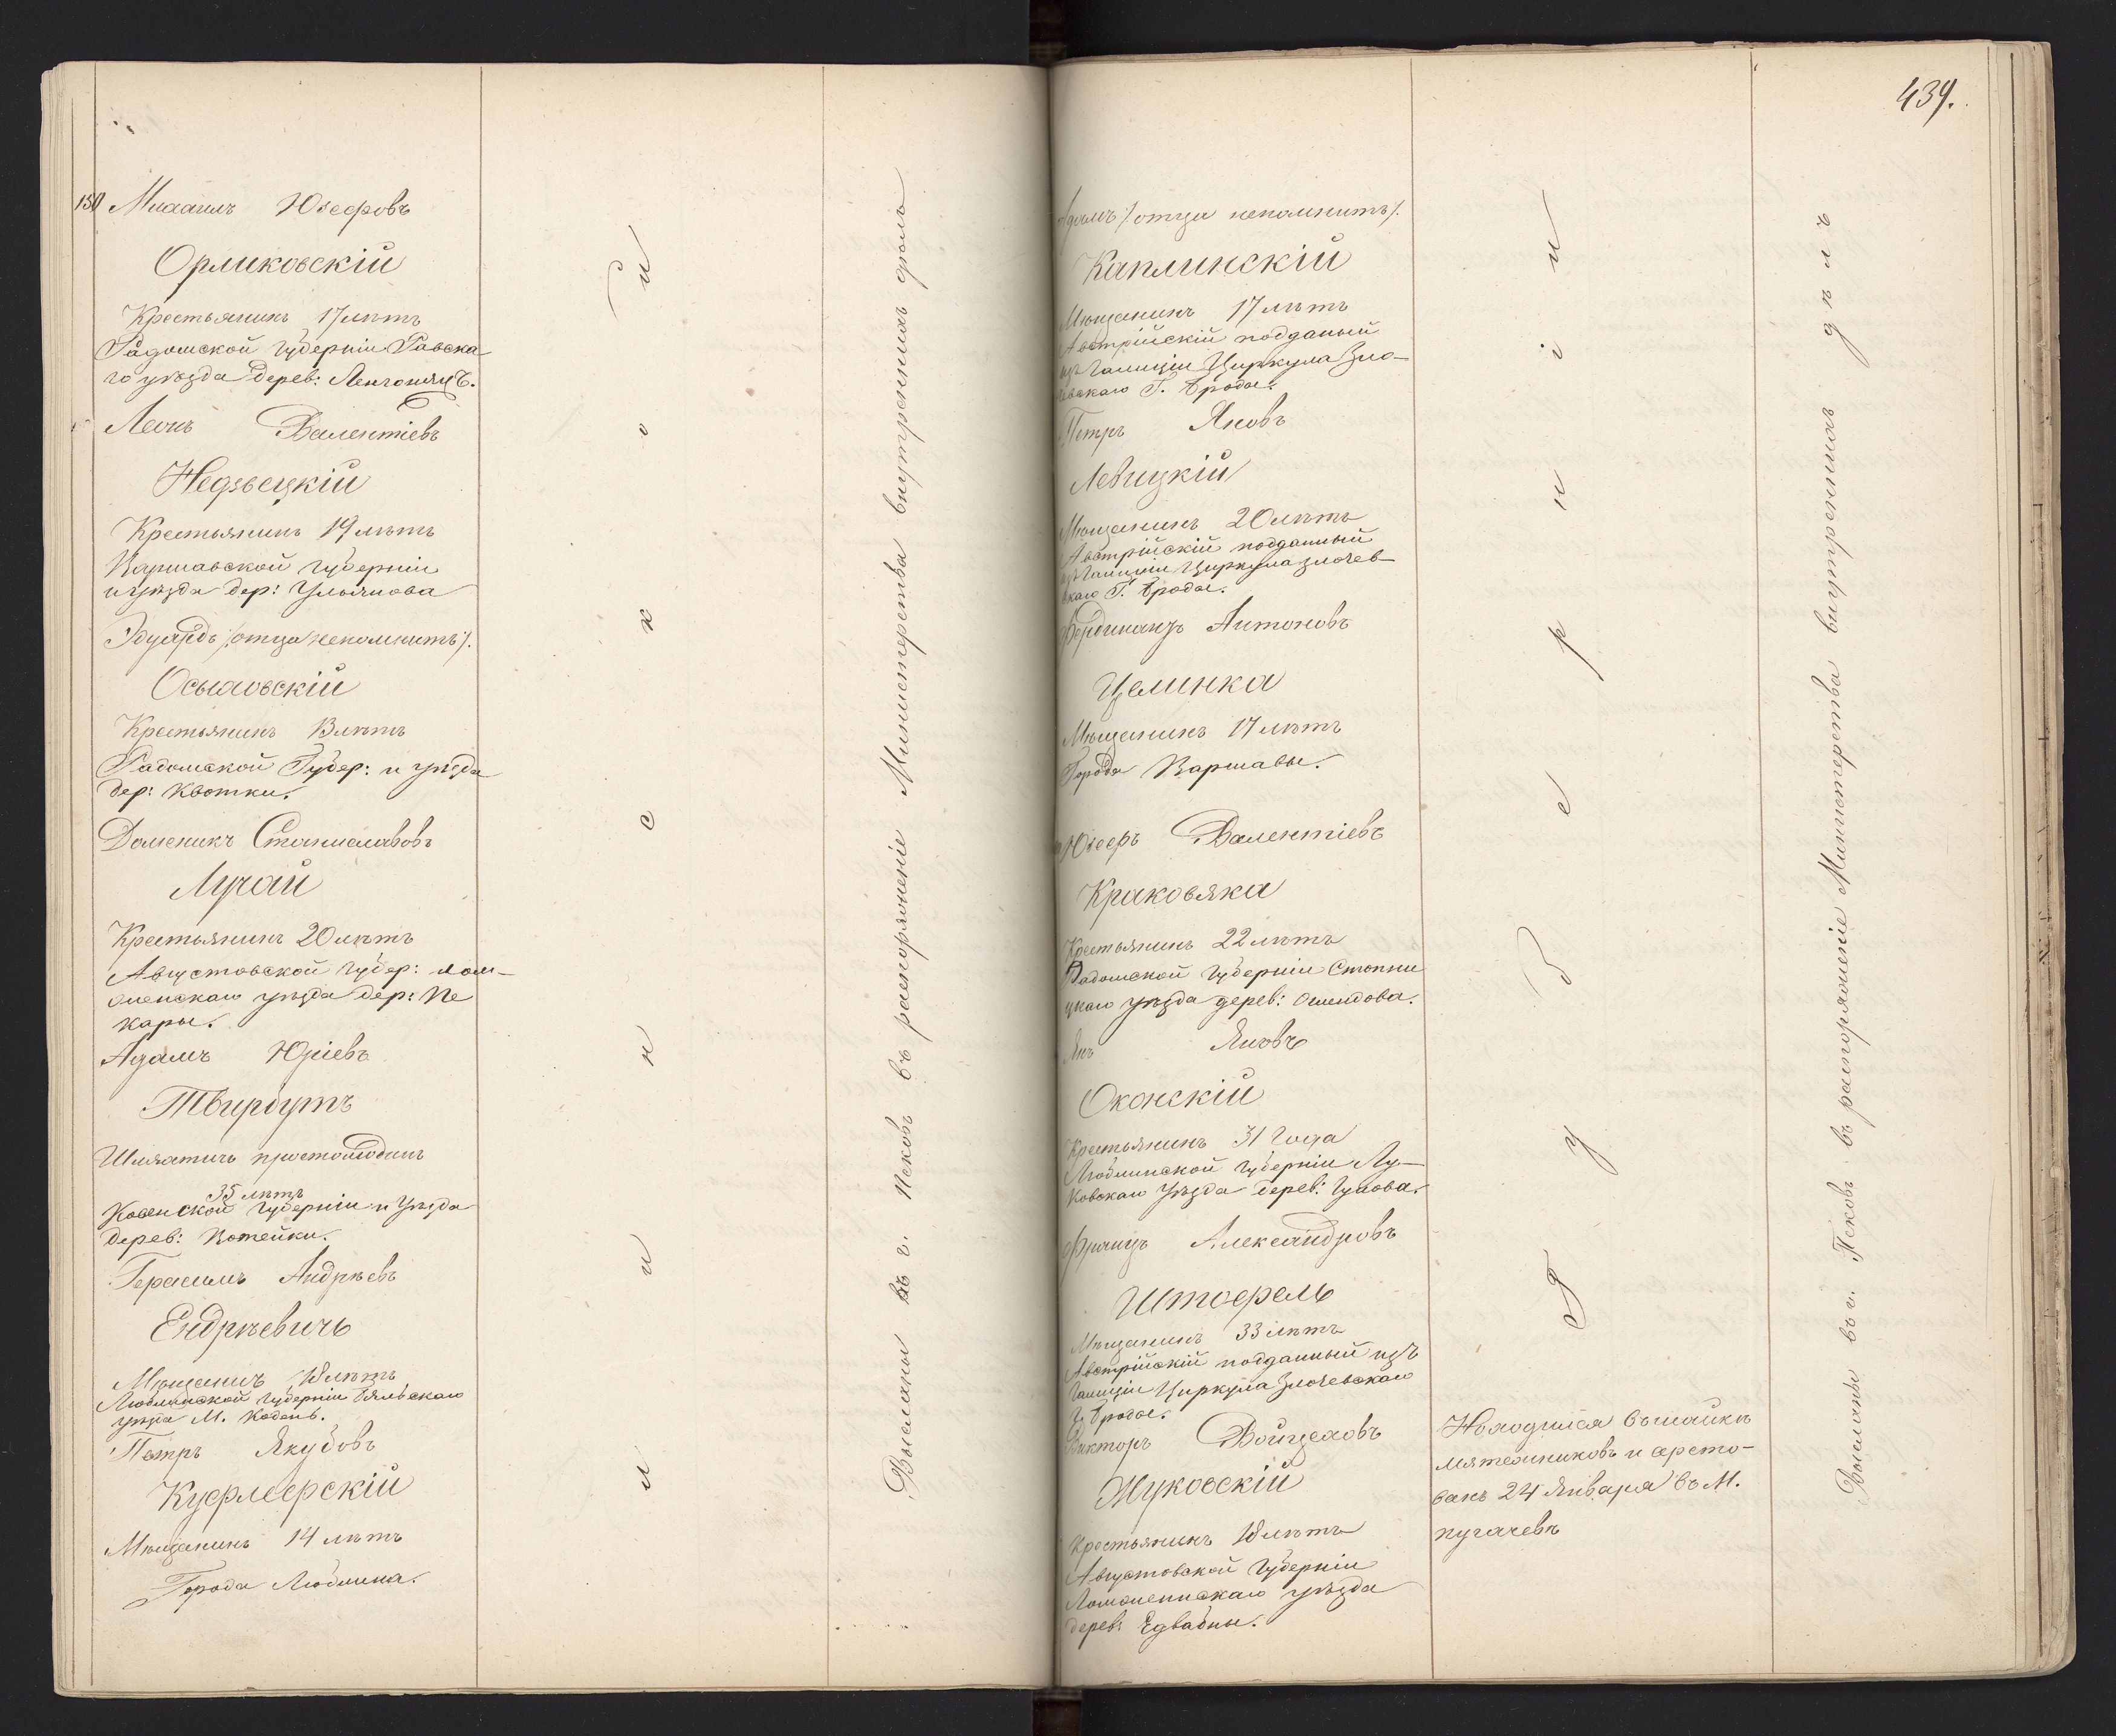 150 Михаилъ Юзефовъ
Орликовскій
Крестьянинъ 17 лѣтъ
Радомской Губерніи Равска
го уѣзда дерев:
Леонъ Валентіевъ
Недзвецкій
Крестьянинъ 19 лѣтъ
Варшавской Губерніи
и уѣзда дер: Ульянова
Эдуардъ /: отца непомнитъ /.
Осыховскій
Крестьянинъ лѣтъ
Радомской Губер: и уѣзда
дер: Квотки.
Доменикъ Станиславовъ
Лучай
Крестьянинъ 20 лѣтъ
Августовской Губер: Лом-
женскаго уѣзда дер: Пе
кары.
Адамъ Юріевъ
Твирбутъ
Шляхтичъ простолюдинъ
35 лѣтъ
Ковенской Губерніи и Уѣзда
дерев: Вотейки.
Герасимъ Андрѣевъ
Ендрѣевичъ
Мѣщанинъ 18 лѣтъ
Люблинской Губерніи Бяльскаго
уѣзда М. Кодень.
Петръ Якубовъ
Куфлефскій
Мѣщанинъ 14 лѣтъ
Города Люблина.
Высланы въ г. Псковъ въ распоряженіе Министерства внутреннихъ дѣлъ
439.
Адамъ /: отца непомнитъ /.
Каплинскій
Мѣщанинъ 17 лѣтъ
Австрійскій подданый
изъ Галиціи Циркула Зло-
чевскаго Г. Броды.
Петръ Яновъ
Левицкій
Мѣщанинъ 20 лѣтъ
Австрійскій подданный
изъ Галиціи Циркула Злочев-
скаго Г. Броды.
Фердинандъ Антоновъ
Целинка
Мѣщанинъ 17 лѣтъ
Города Варшавы.
Юзефъ Валентіевъ
Краковяка
Крестьянинъ 22 лѣтъ
Радомской Губерніи Стопни
цкаго уѣзда дерев:
Янъ Яновъ
Оконскій
Крестьянинъ 31 Года
Люблинской Губерніи Лу-
ковскаго Уѣзда дерев: Гулова.
Францъ Александровъ
Штофель
Мѣщанинъ 33 лѣтъ
Австрійскій подданный изъ
Галиціи Циркула Злочевскаго
Г. Броды.
Викторъ Войцеховъ
Жуковскій
Крестьянинъ 18 лѣтъ
Августовской Губерніи
Ломженнскаго уѣзда
дерев: Едвабны.
Губерніи
Находился въ шайкѣ
мятежниковъ и аресто-
ванъ 24 Января въ М.
пугачевѣ
Высланы въ г. Псковъ въ распоряженіе Министерства внутреннихъ дѣлъ